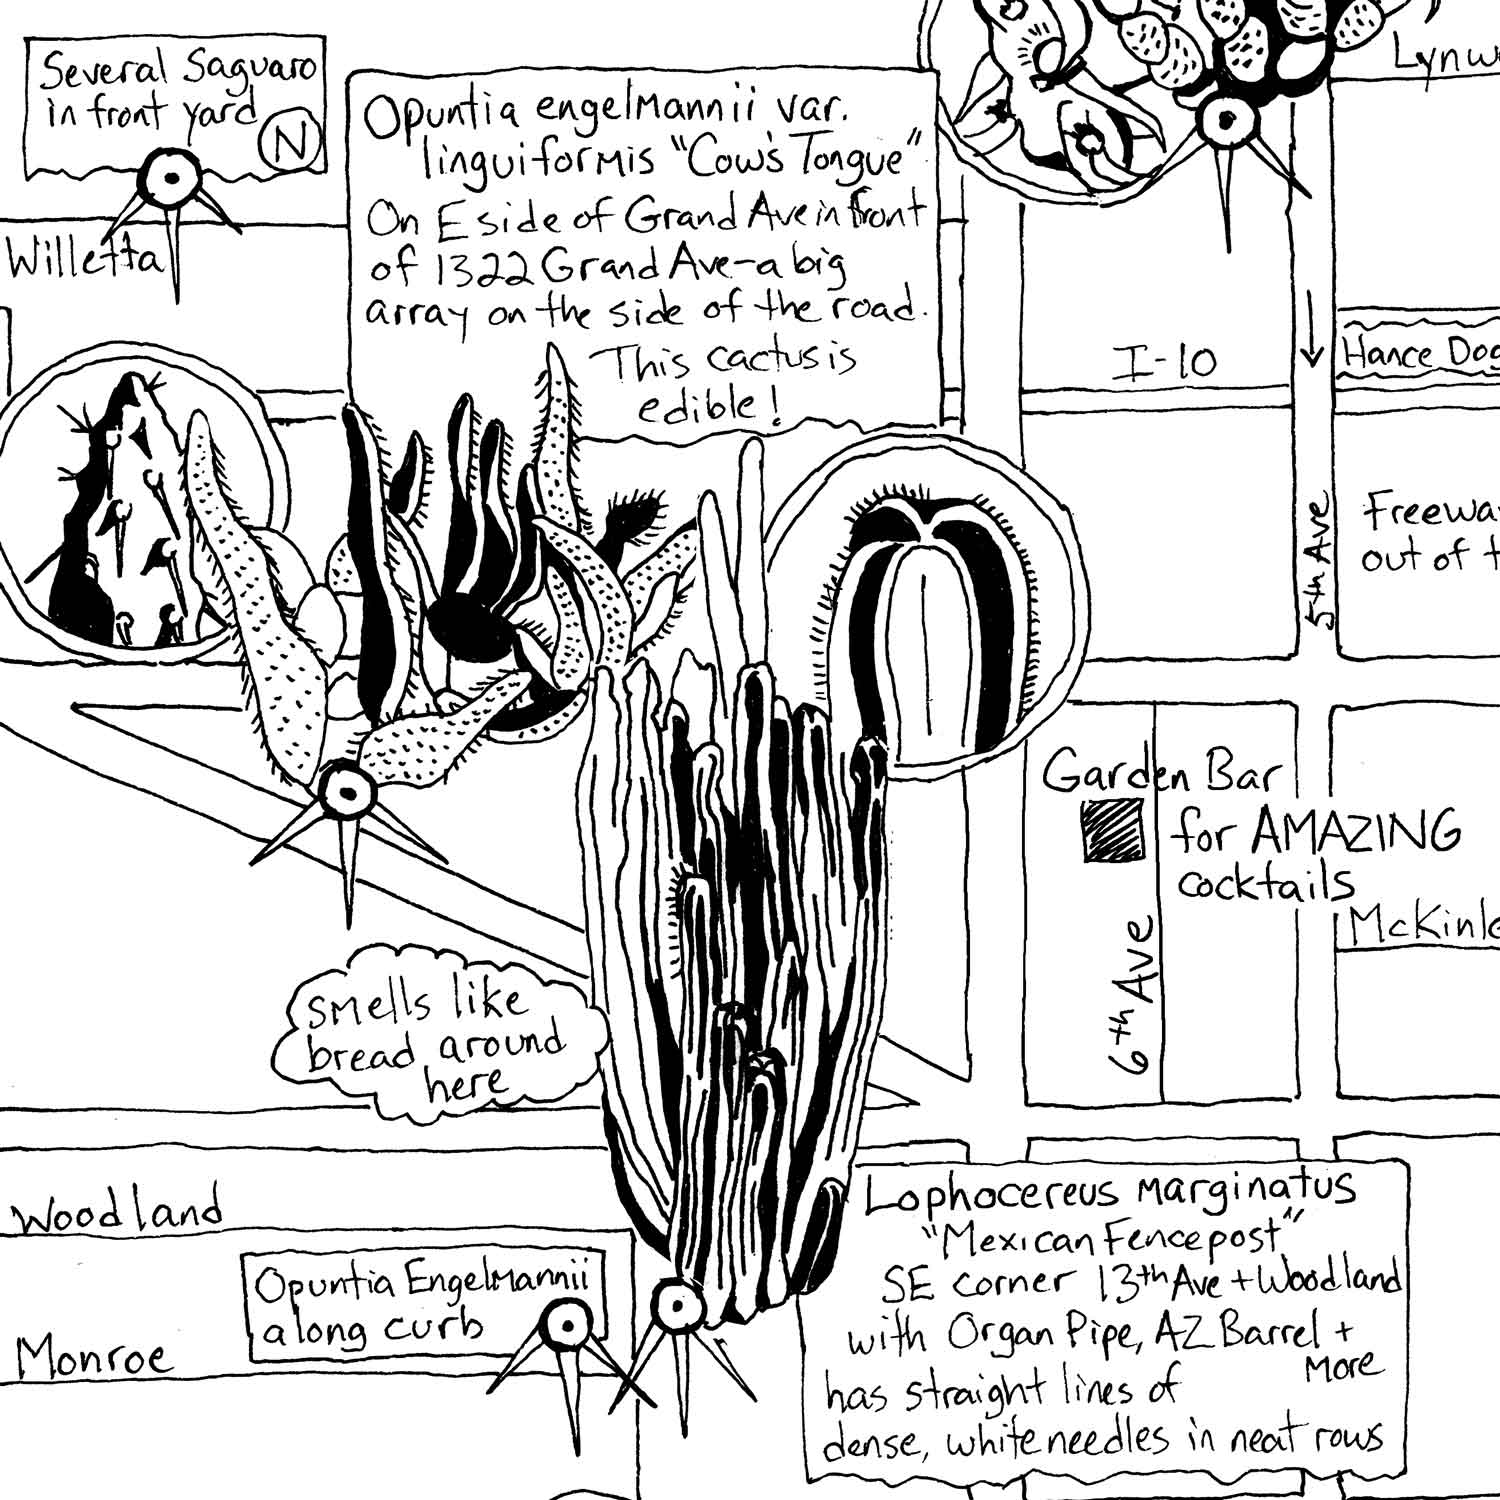 Several Saguaro
in front yard
N
Willetta
Opuntia engelmannii var.
linguiformis "Cow's Tongue"
On E side of Grand Ave in front
of 1322 Grand Ave-a big
array on the side of the road.
This cactus is
edible!
I-10
Hance
5th Ave
out of
Garden Bar
for AMAZING
cocktails
6th Ave
smells like
bread around
here
Woodland
Opuntia Engelmannii
along curb
Monroe
Lophocereus marginatus
"Mexican Fencepost"
SE corner 13th Ave + Woodland
with Organ Pipe, AZ Barrel +
More
has straight lines of
dense, white needles in neat rows